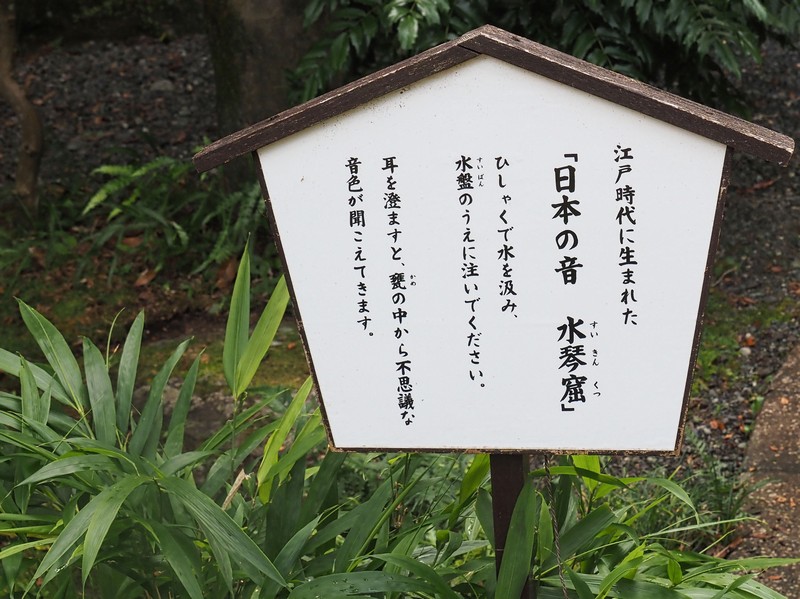 江戸時代に生まれた
「日本の音　水琴窟」
すいきんくつ
ひしゃくで水を汲み、
水盤のうえに注いでください。
すいばん
耳を澄ますと、甕の中から不思議な
かめ
音色が聞こえてきます。